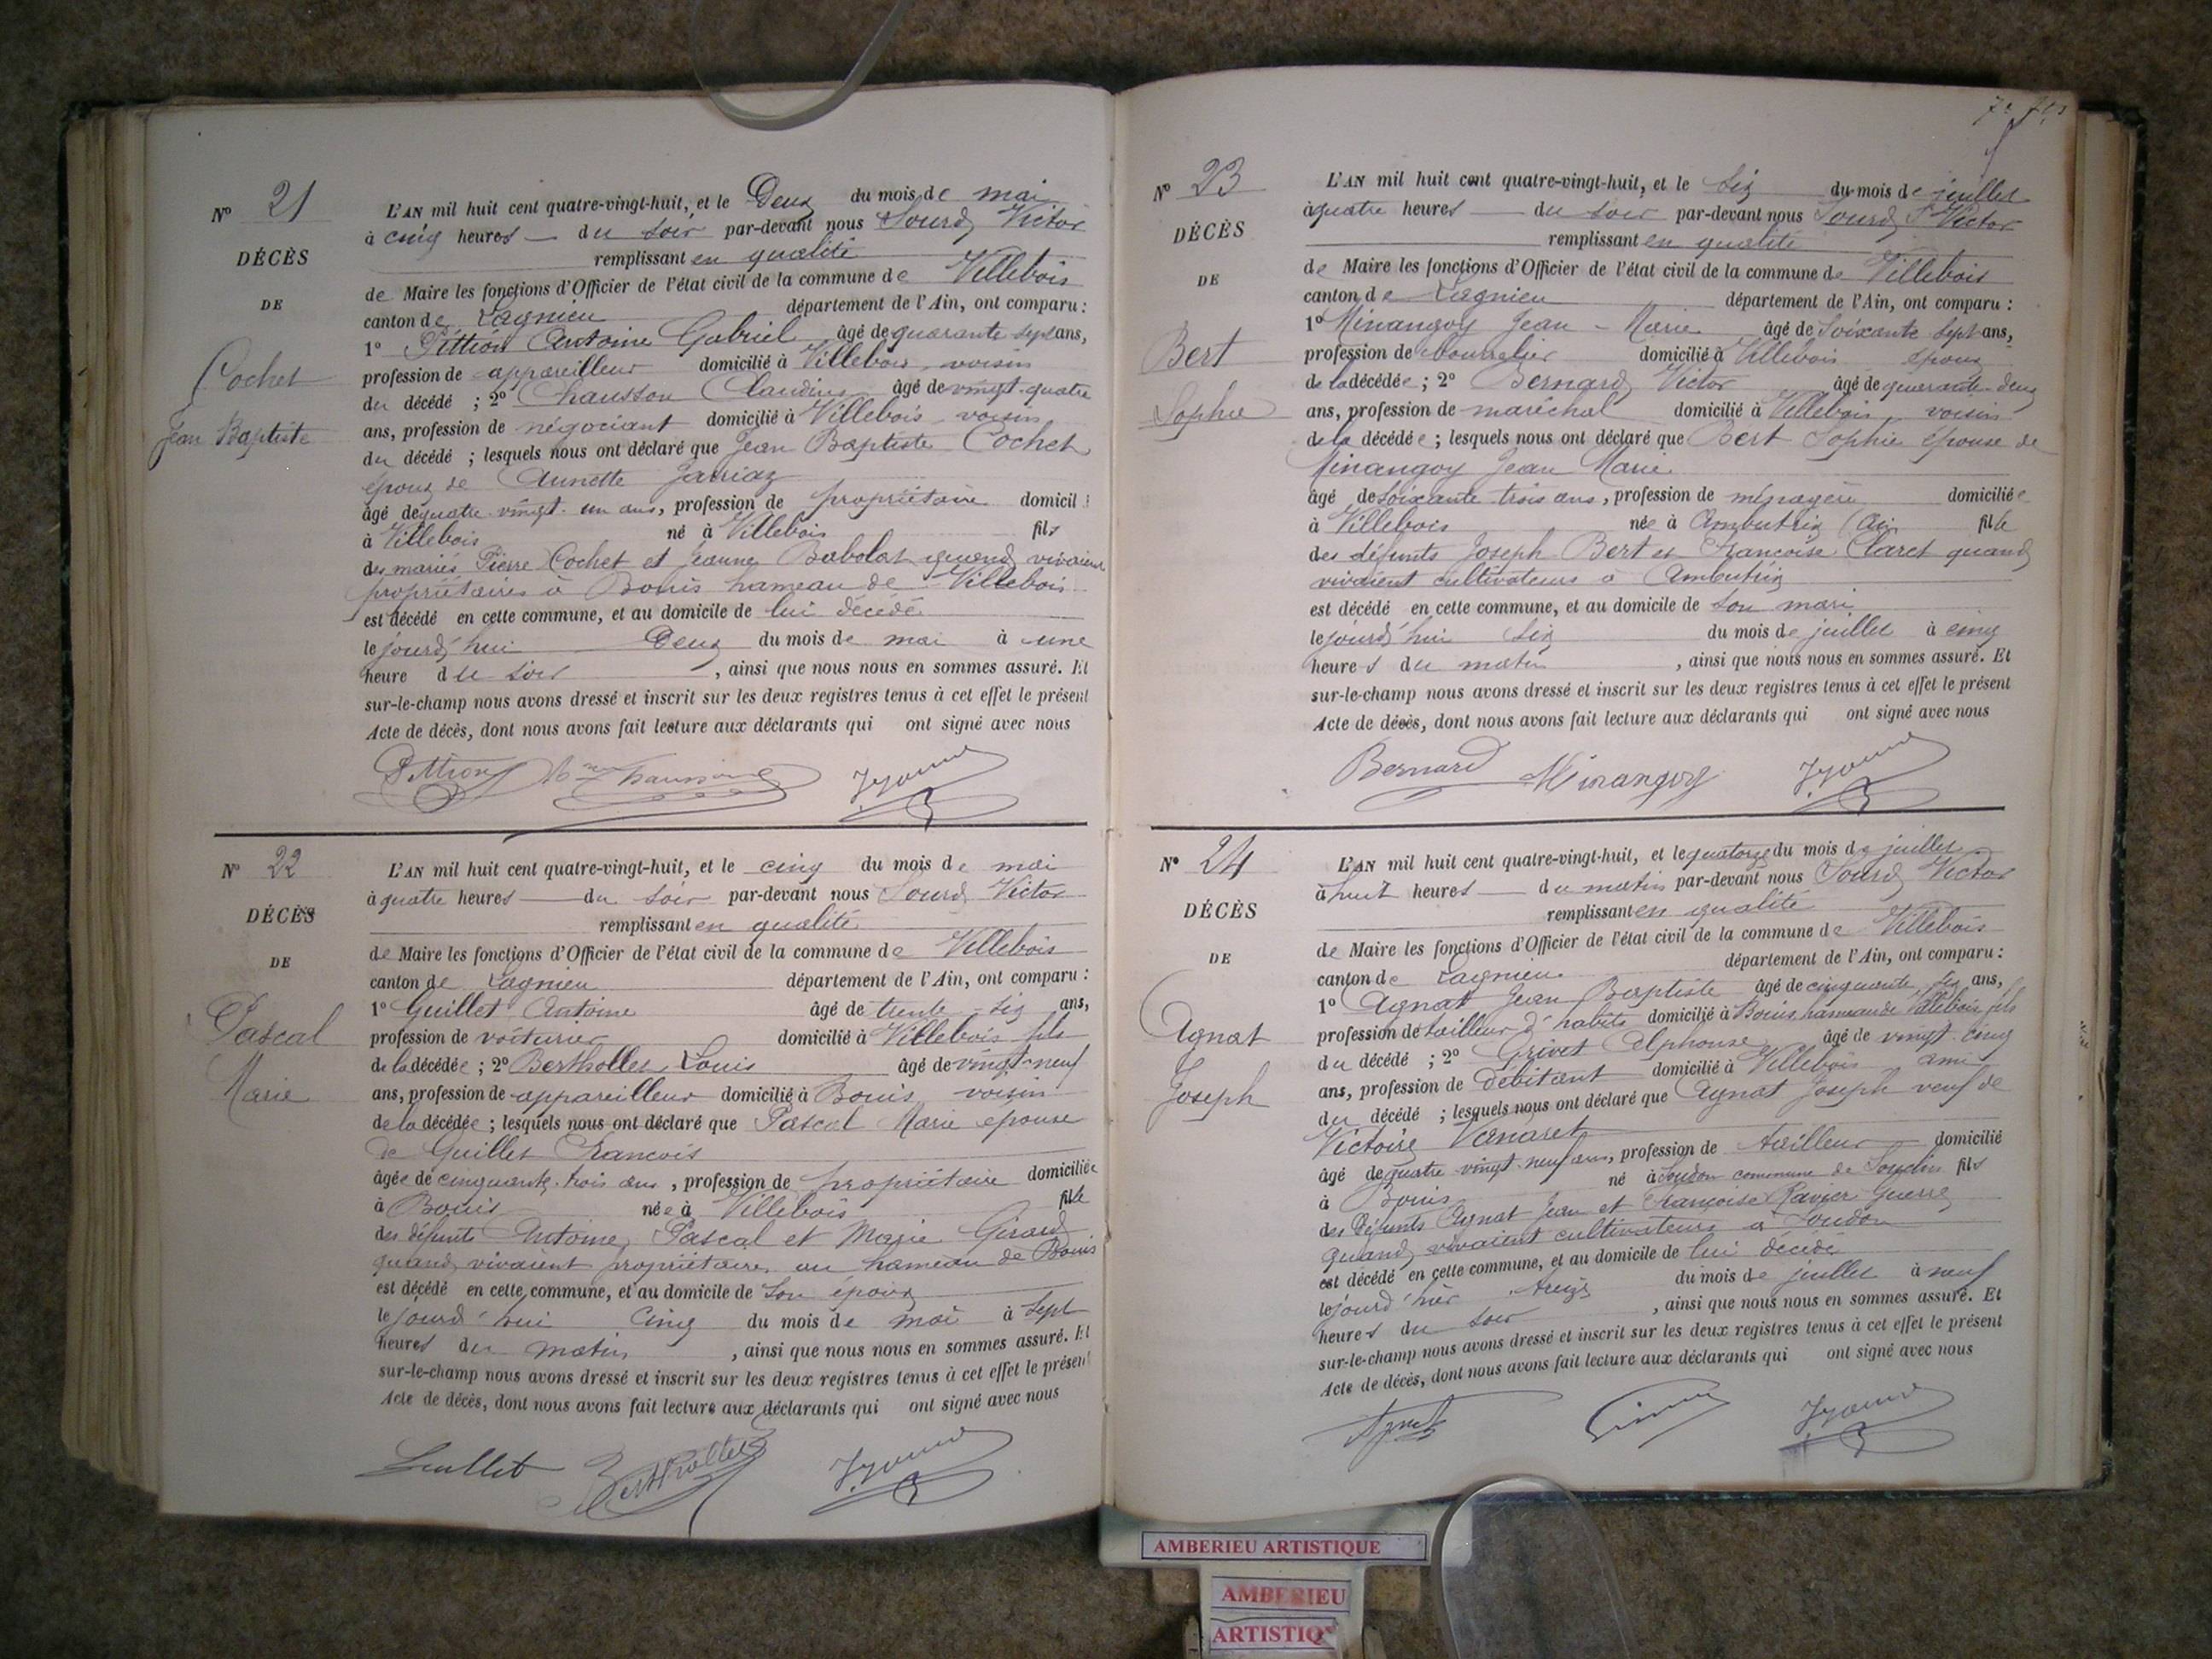 Nº 21
DÉCÈS
DE
Cochet
Jean Baptiste
L'AN mil huit cent quatre-vingt-huit, et le Deux du mois de mai
à cinq heures du soir par-devant nous Sourd Victor
remplissant en qualité
de Maire les fonctions d'Officier de l'état civil de la commune de Villebois
canton de Lagnieu département de l'Ain, ont comparu :
1º Pittion Antoine Gabriel âgé de quarante sept ans,
profession de appareilleur domicilié à Villebois voisin
du décédé ; 2º Chausson Claudius âgé de vingt-quatre
ans, profession de négociant domicilié à Villebois voisin
du décédé ; lesquels nous ont déclaré que Jean Baptiste Cochet
époux de Annette Jarriaz
âgé de quatre-vingt-un ans, profession de propriétaire domicil
à Villebois né à Villebois fils
des mariés Pierre Cochet et Jeanne Babolat quand vivaient
propriétaires à Bouis hameau de Villebois
est décédé en cette commune, et au domicile de lui décédé
le jourd'hui Deux du mois de mai à une
heure du soir , ainsi que nous nous en sommes assuré. Et
sur-le-champ nous avons dressé et inscrit sur les deux registres tenus à cet effet le présent
Acte de décès, dont nous avons fait lecture aux déclarants qui ont signé avec nous
Pittion Chausson
Nº 22
DÉCÈS
DE
Pascal
Marie
L'AN mil huit cent quatre-vingt-huit, et le cinq du mois de mai
à quatre heures du soir par-devant nous Sourd Victor
remplissant en qualité
de Maire les fonctions d'Officier de l'état civil de la commune de Villebois
canton de Lagnieu département de l'Ain, ont comparu :
1º Guillet Antoine âgé de trente-six ans,
profession de voiturier domicilié à Villebois fils
de la décédée ; 2º Berthollet Louis âgé de vingt-neuf
ans, profession de appareilleur domicilié à Bouis voisin
de la décédée ; lesquels nous ont déclaré que Pascal Marie épouse
de Guillet Francois
âgée de cinquante-trois ans , profession de propriétaire domiciliée
à Bouis née à Villebois fille
des défunts Antoine Pascal et Marie Girard
quand vivaient propriétaires au hameau de Bouis
est décédé en cette commune, et au domicile de son époux
le jourd'hui cinq du mois de mai à sept
heures du matin , ainsi que nous nous en sommes assuré. Et
sur-le-champ nous avons dressé et inscrit sur les deux registres tenus à cet effet le présent
Acte de décès, dont nous avons fait lecture aux déclarants qui ont signé avec nous
Guillet Berthollet
Nº 23
DÉCÈS
DE
Bert
Sophie
L'AN mil huit cent quatre-vingt-huit, et le six du mois de juillet
à quatre heures du soir par-devant nous Sourd Victor
remplissant en qualité
de Maire les fonctions d'Officier de l'état civil de la commune de Villebois
canton de Lagnieu département de l'Ain, ont comparu :
1º Minangoy Jean-Marie âgé de soixante sept ans,
profession de bourrelier domicilié à Villebois époux
de la décédée ; 2º Bernard Victor âgé de quarante-deux
ans, profession de maréchal domicilié à Villebois, voisin
de la décédée ; lesquels nous ont déclaré que Bert Sophie épouse de
Minangoy Jean Marie
âgé de soixante trois ans, profession de ménagère domiciliée
à Villebois née à Ambutrix (Ain fille
des défunts Joseph Bert et Françoise Claret quand
vivaient cultivateurs à Ambutrix
est décédé en cette commune, et au domicile de son mari
le jourd'hui six du mois de juillet à cinq
heures du matin , ainsi que nous nous en sommes assuré. Et
sur-le-champ nous avons dressé et inscrit sur les deux registres tenus à cet effet le présent
Acte de décès, dont nous avons fait lecture aux déclarants qui ont signé avec nous
Bernard Minangoy
Nº 24
DÉCÈS
DE
Agnat
Joseph
L'AN mil huit cent quatre-vingt-huit, et le quatorze du mois de juillet
à huit heures du matin par-devant nous Sourd Victor
remplissant en qualité
de Maire les fonctions d'Officier de l'état civil de la commune de Villebois
canton de Lagnieu département de l'Ain, ont comparu :
1º Agnat Jean Baptiste âgé de cinquante six ans,
profession de tailleur d'habits domicilié à Bouis hameau de Villebois fils
du décédé ; 2º Grivet Alphonse âgé de vingt-cinq
ans, profession de Débitant domicilié à Villebois ami
du décédé ; lesquels nous ont déclaré que Agnat Joseph veuf de
Victoire Vanaret
âgé de quatre vingt-neuf ans, profession de tailleur domicilié
à Bouis né à Soudon commune de Souclin fils
des Défunts Agnat Jean et Françoise Ravier Guerre
quand vivaient cultivateurs à Soudon
est décédé en cette commune, et au domicile de lui décédé
le jourd'hier treize du mois de juillet à neuf
heures du soir , ainsi que nous nous en sommes assuré. Et
sur-le-champ nous avons dressé et inscrit sur les deux registres tenus à cet effet le présent
Acte de décès, dont nous avons fait lecture aux déclarants qui ont signé avec nous
AMBERIEU ARTISTIQUE
AMBERIEU
ARTISTIQ